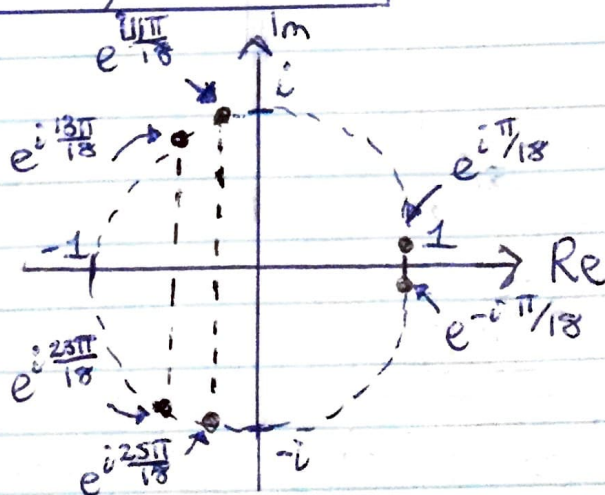 Im
e^{i 11π/18}
i
e^{i 13π/18}
e^{i π/18}
-1
1
Re
e^{-i π/18}
e^{i 23π/18}
e^{i 25π/18}
-i